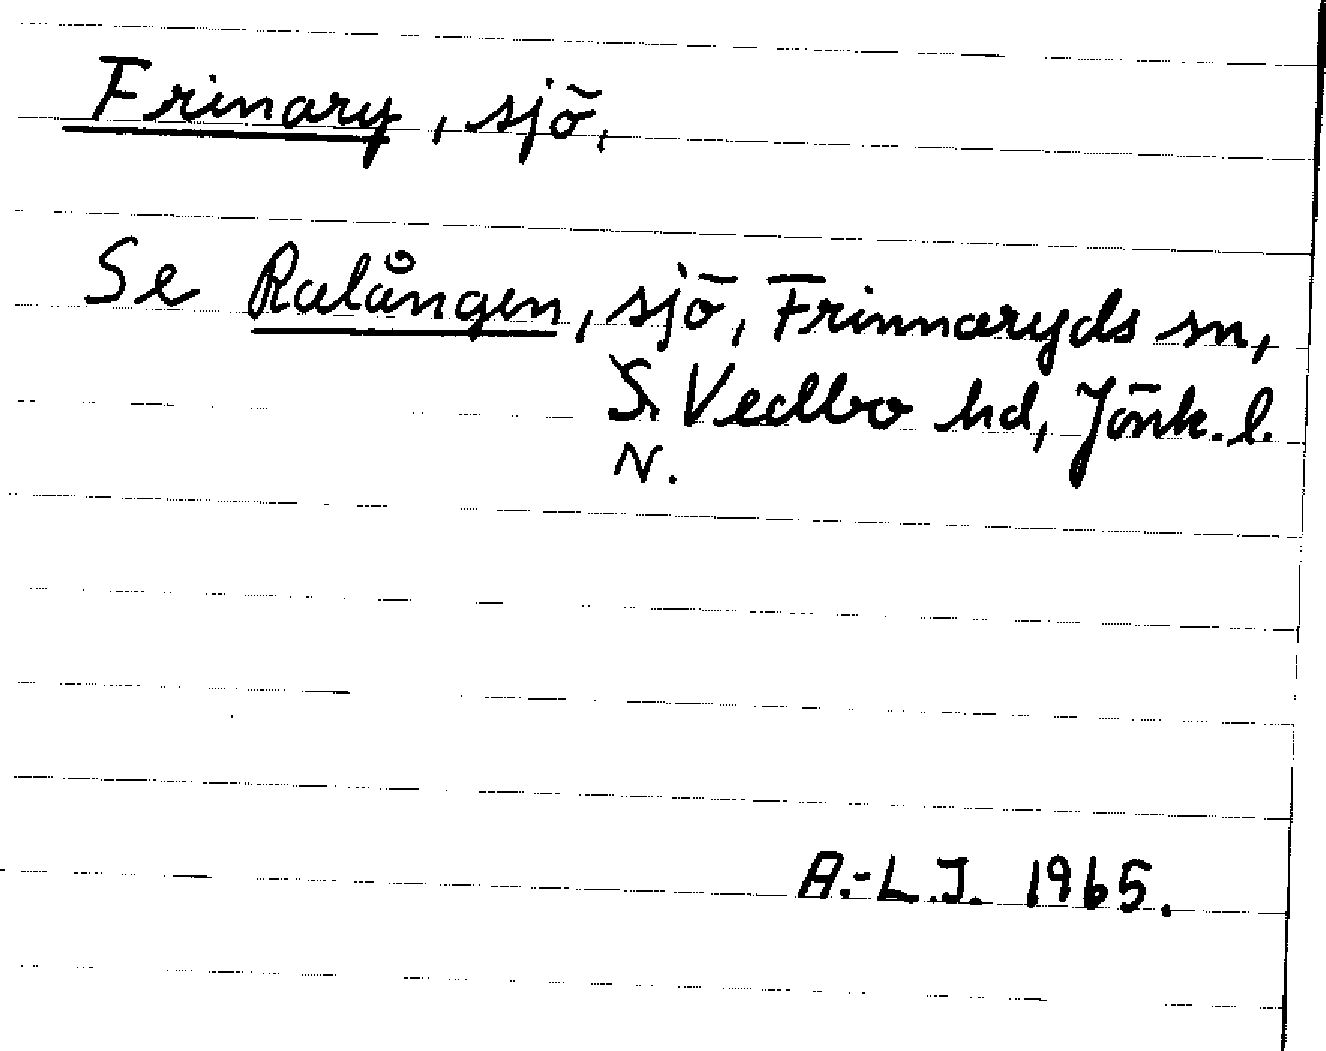 Frinary, sjö,
Se Ralången, sjö, Frinnaryds sn,
S. Vedbo hd, Jönk. l.
N.
A.-L.J. 1965.